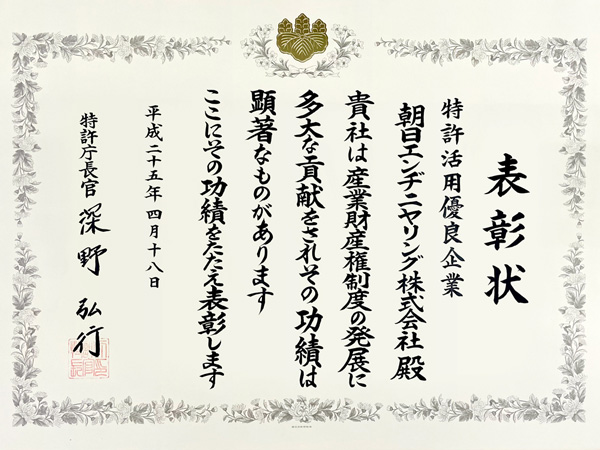 表彰状
特許活用優良企業
朝日エンヂニヤリング株式会社 殿
貴社は産業財産権制度の発展に
多大な貢献をされその功績は
顕著なものがあります
ここにその功績をたたえ表彰します
平成二十五年四月十八日
特許庁長官 深野弘行